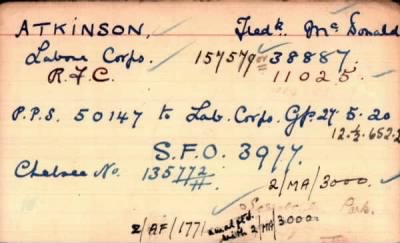 ATKINSON, Fredk. McDonald
Labour Corps. 157579 or 38887.
R.F.C. 11025.
P.P.S. 50147 to Lab. Corps. Gp. 27.5.20
S.F.O. 3977.
Chelsea No. 135772/H.
2/MA/3000.
Park.
2/AF/177 with 2/MA/3000.